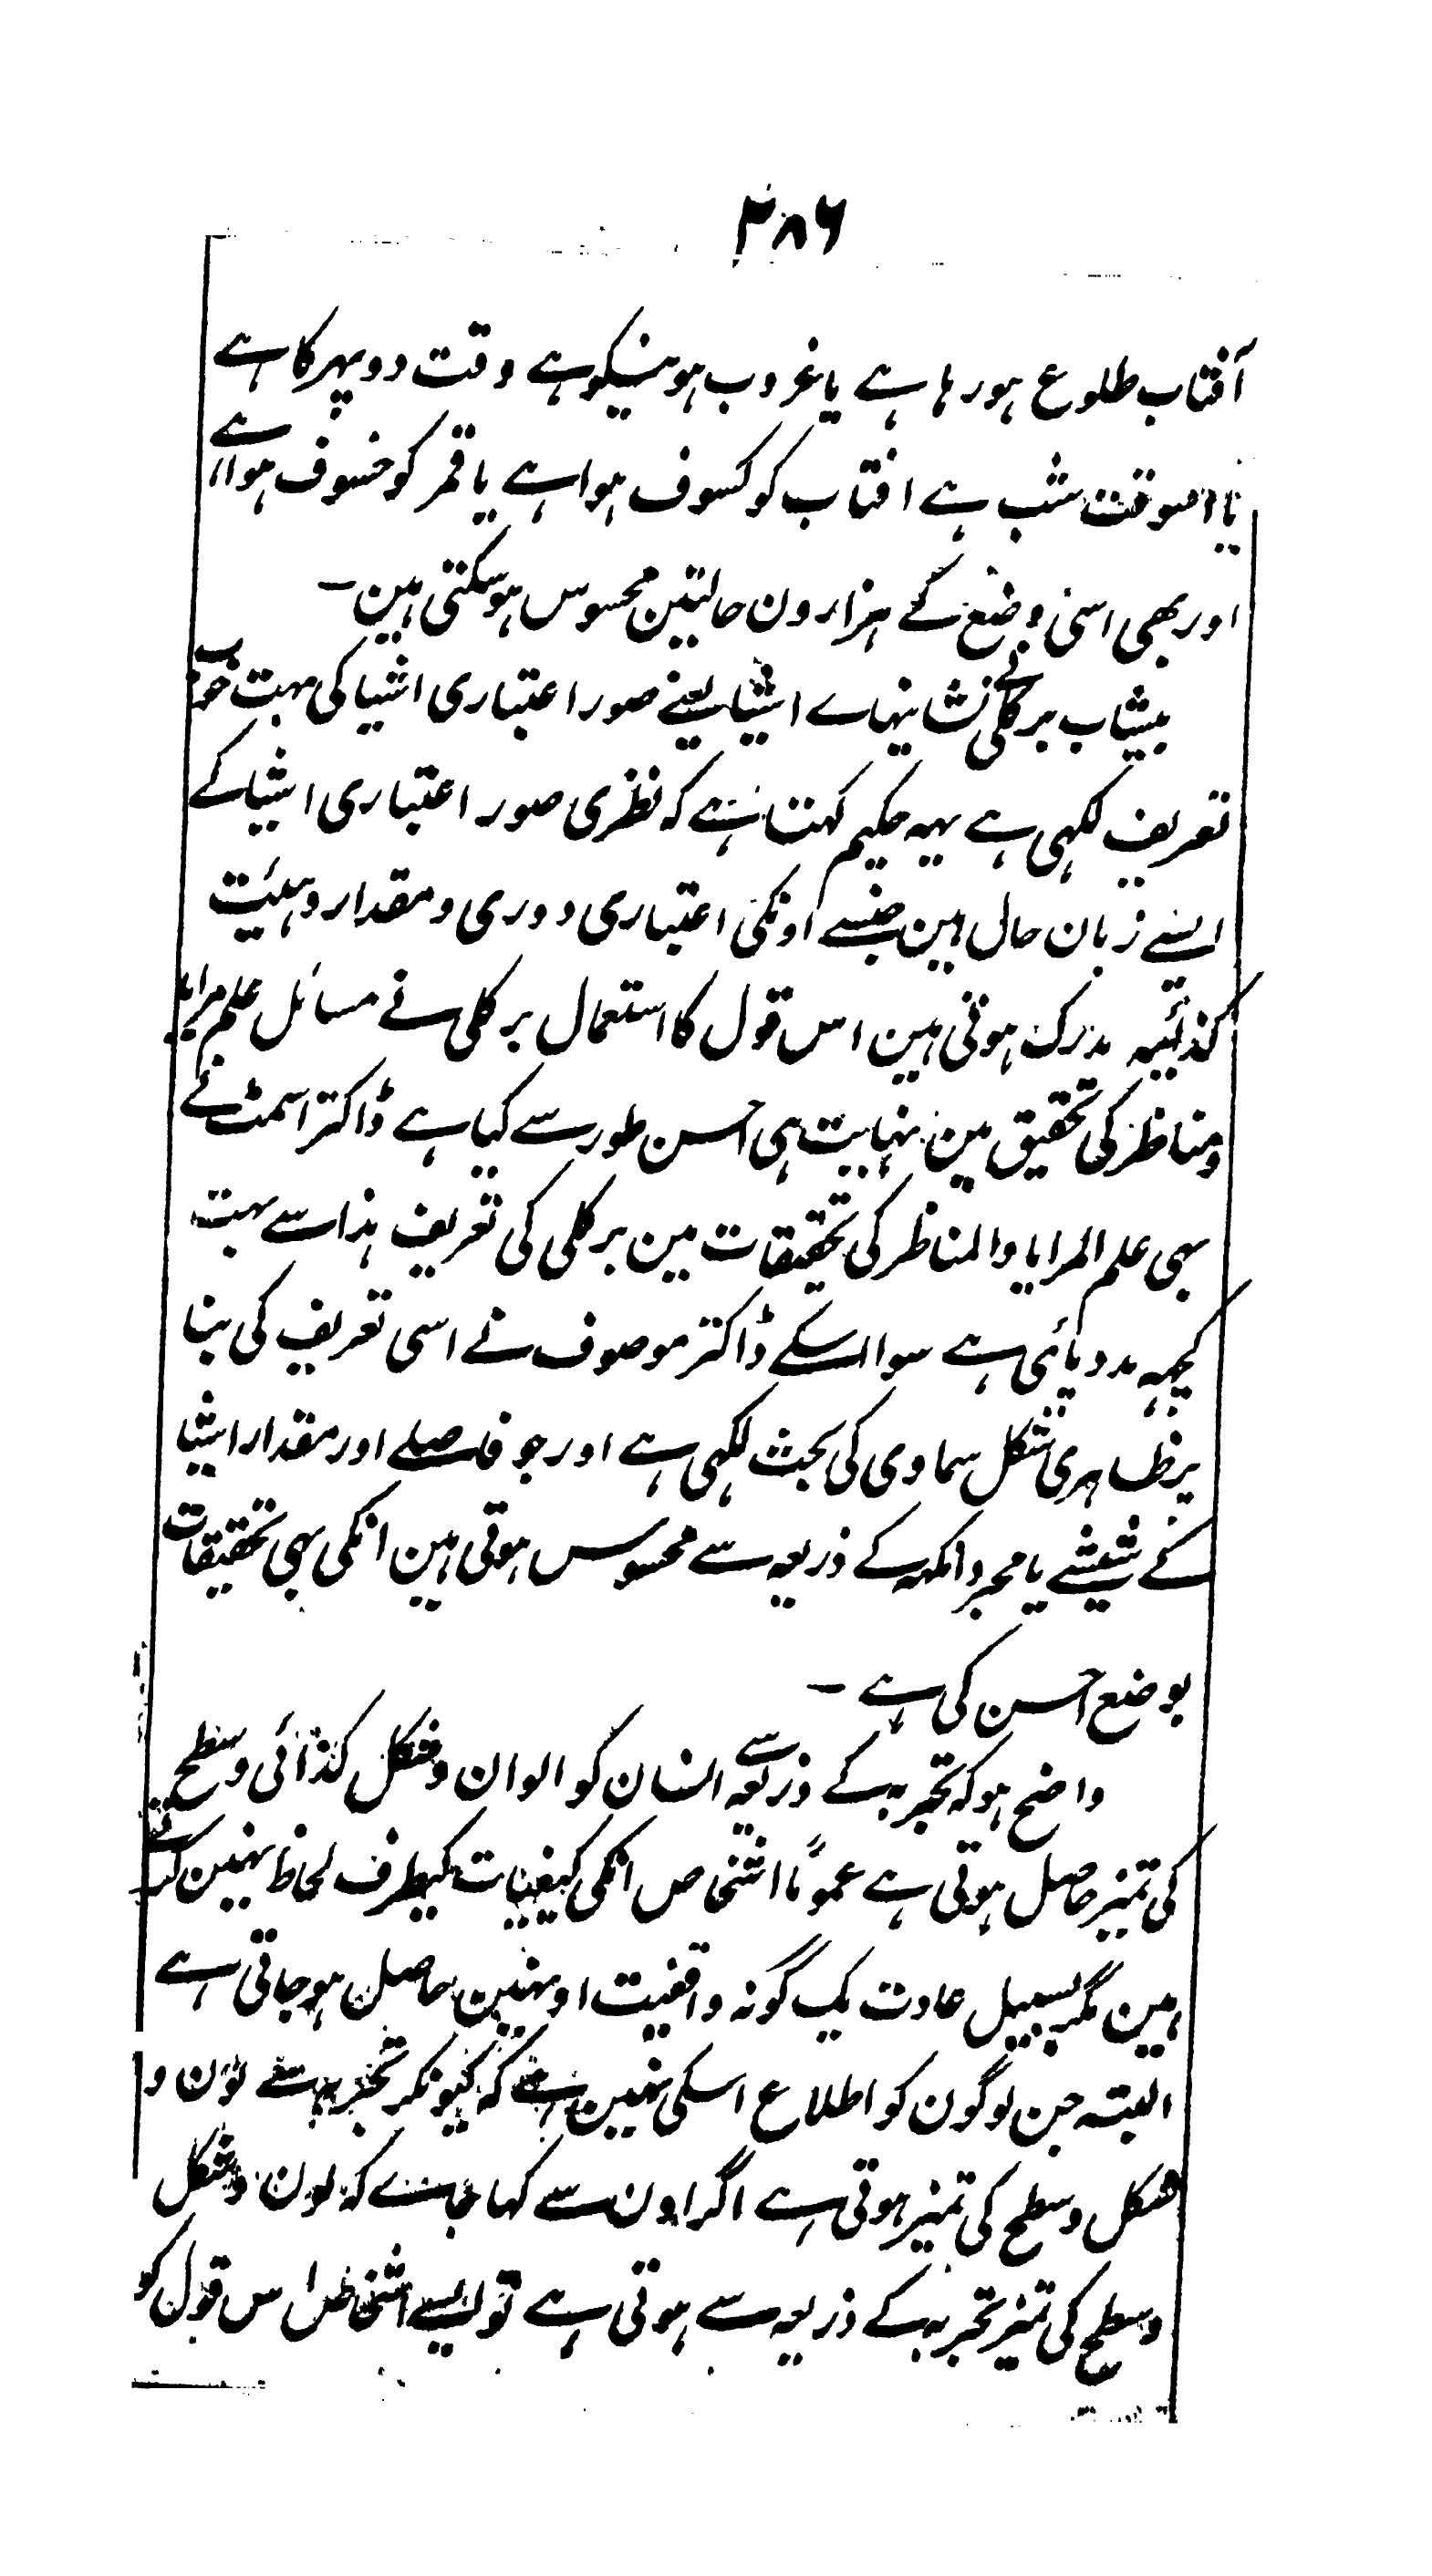 ۲۸۶
آفتاب طلوع ہو رہا ہے یا غروب ہونیکو ہے وقت دوپہر کا ہے
یا اسوقت شب ہے افتاب کو کسوف ہوا ہے یا قمر کو خسوف ہوا ہے
اور بھی اسی وضع کے ہزارون حالتین محسوس ہو سکتی ہین ـ
بیشاب برکلی نے نشانیہاے اشیا یعنے صور اعتباری اشیا کی بہت خوب
تعریف لکہی ہے یہہ حکیم کہتا ہے کہ نظری صور اعتباری اشیا کے
ایسے زبان حال ہین جنسے اونکی اعتباری دوری و مقدار و ہیئت
کذائیہ مدرک ہوتی ہین اس قول کا استعمال برکلی نے مسائل علم مرایا
و مناظر کی تحقیق مین نہایت ہی احسن طور سے کیا ہے ڈاکتر اسمٹ نے
بہی علم المرایا والمناظر کی تحقیقات مین برکلی کی تعریف ہذا سے بہت
کچہہ مدد پائی ہے سوا اسکے ڈاکتر موصوف نے اسی تعریف کی بنا
پر ظاہری شکل سماوی کی بحث لکہی ہے اور جو فاصلے اور مقدار اشیا
کے شیشے یا مجرد انکہہ کے ذریعہ سے محسوس ہوتی ہین انکی بہی تحقیقات
بوضع احسن کی ہے ـ
واضح ہو کہ تجربہ کے ذریعہ سے انسان کو الوان و شکل کذائی و سطح
کی تمیز حاصل ہوتی ہے عموماً اشخاص انکی کیفیات کیطرف لحاظ نہین کرتے
ہین مگر بسبیل عادت یک گونہ واقفیت اونہین حاصل ہو جاتی ہے
البتہ جن لوگون کو اطلاع اسکی نہین ہے کہ کیونکر تجربہ سے لون و
شکل و سطح کی تمیز ہوتی ہے اگر اون سے کہا جاے کہ لون و شکل
و سطح کی تمیز تجربہ کے ذریعہ سے ہوتی ہے تو ایسے اشخاص اس قول کو